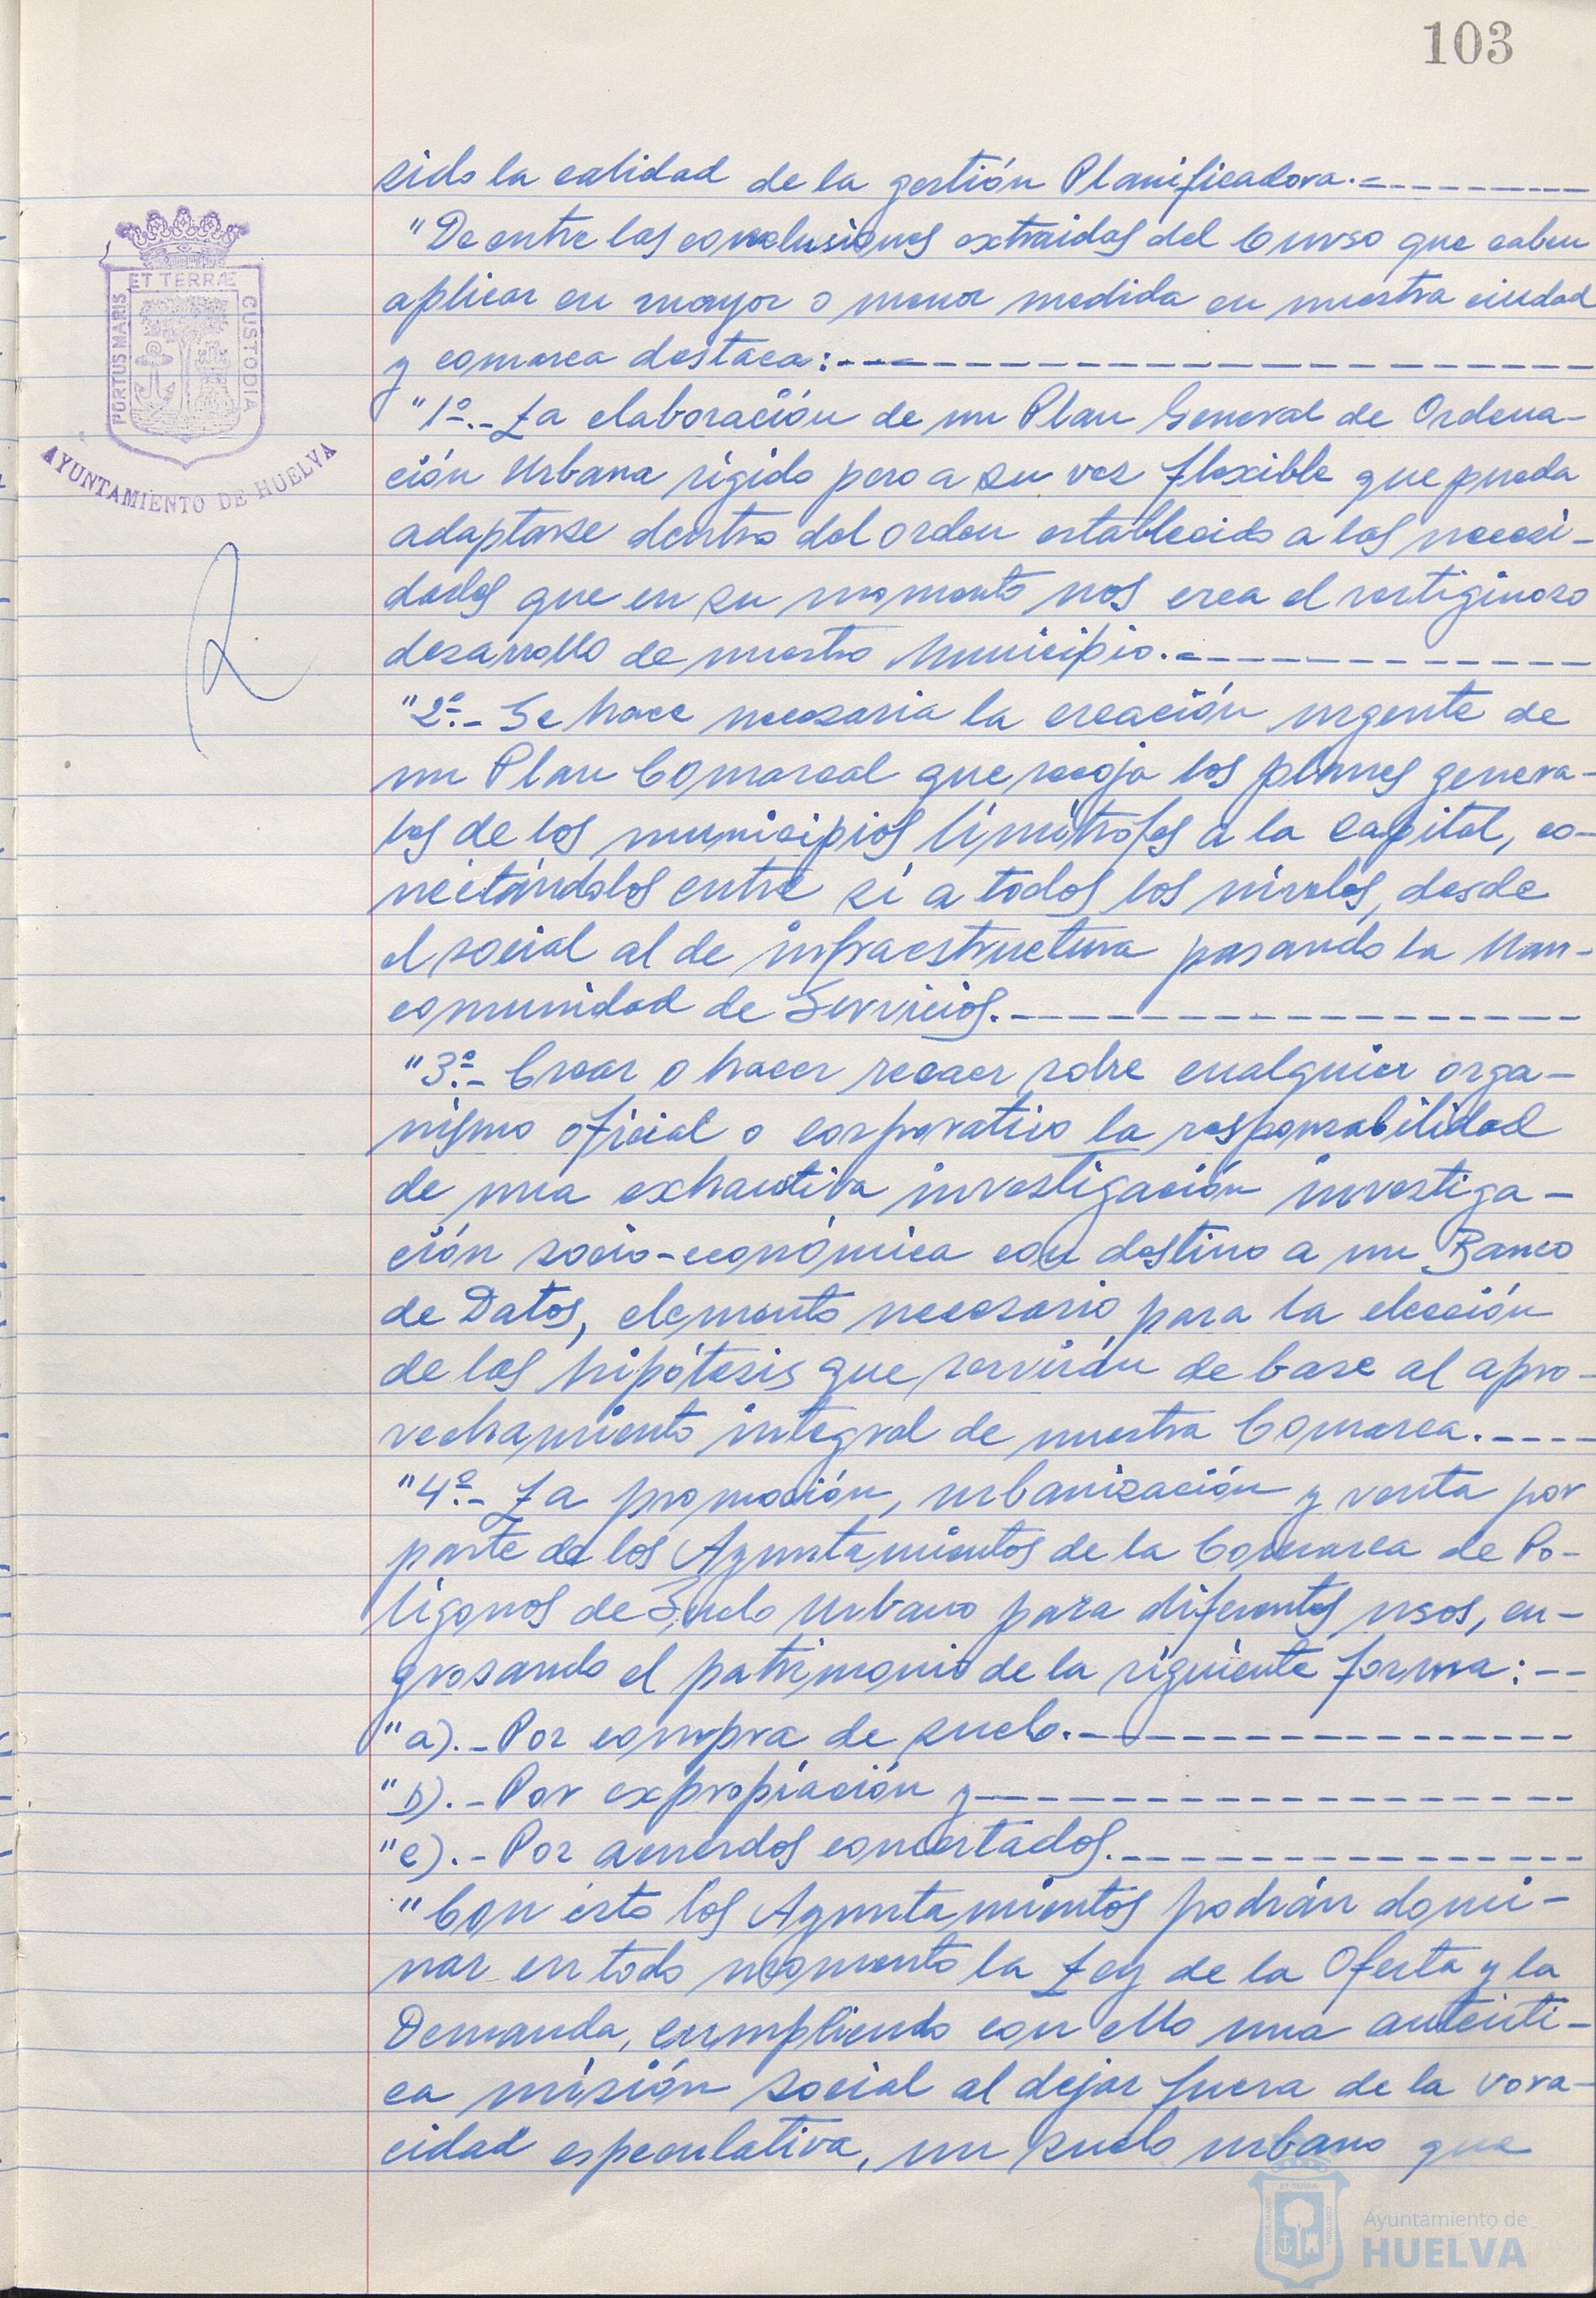 103
sido la calidad de la gestión Planificadora.-
"De entre las conclusiones extraidas del Curso que caben
aplicar en mayor o menor medida en nuestra ciudad
y comarca destaca:-
"1º.- La elaboración de un Plan General de Ordena-
ción Urbana rigido pero a su vez flexible que pueda
adaptarse dentro del orden establecido a las necesi-
dades que en su momento nos crea el vertiginoso
desarrollo de nuestro Municipio.-
"2º.- Se hace necesaria la creación urgente de
un Plan Comarcal que recoja los planes genera-
les de los municipios limítrofes a la Capital, co-
nectándolos entre sí a todos los niveles, desde
el social al de infraestructura pasando la Man-
comunidad de Servicios.-
"3º.- Crear o hacer recaer sobre cualquier orga-
nismo oficial o corporativo la responsabilidad
de una exhaustiva investigación investiga-
ción socio-económica con destino a un Banco
de Datos, elemento necesario para la elección
de las hipótesis que servirán de base al apro-
vechamiento integral de nuestra Comarca.-
"4º.- La promoción, urbanización y venta por
parte de los Ayuntamientos de la Comarca de Po-
lígonos de Suelo Urbano para diferentes usos, en-
grosando el patrimonio de la siguiente forma:-
"a).- Por compra de suelo.-
"b).- Por expropiación y-
"c).- Por acuerdos concertados.-
"Con ésto los Ayuntamientos podrán domi-
nar en todo momento la Ley de la Oferta y la
Demanda, cumpliendo con ello una auténti-
ca misión social al dejar fuera de la vora-
cidad especulativa, un suelo urbano que
PORTUS MARIS
ET TERRÆ
CUSTODIA
AYUNTAMIENTO DE HUELVA
Ayuntamiento de
HUELVA